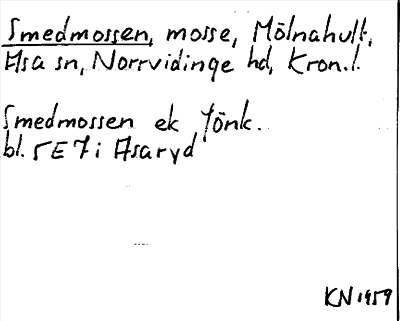 Smedmossen, mosse, Mölnahult,
Asa sn, Norrvidinge hd, Kron.l.
Smedmossen ek Jönk.
bl. 5E7i Asaryd
KN 1959